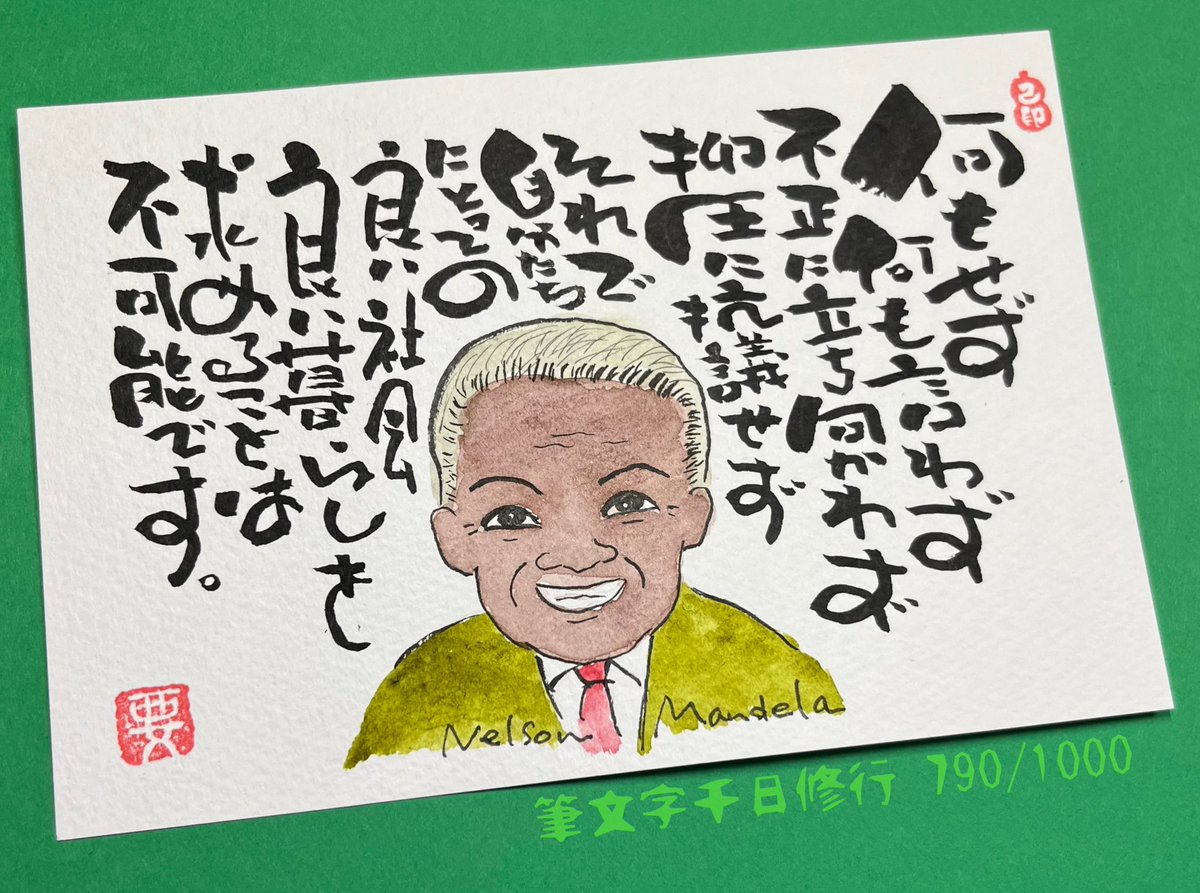 何もせず
何も言わず
不正に立ち向かわず
抑圧に抗議せず
それで
自分たち
にとっての
良い社会
良い暮らしを
求めることは
不可能です。
Nelson Mandela
己印
要
筆文字千日修行 790/1000